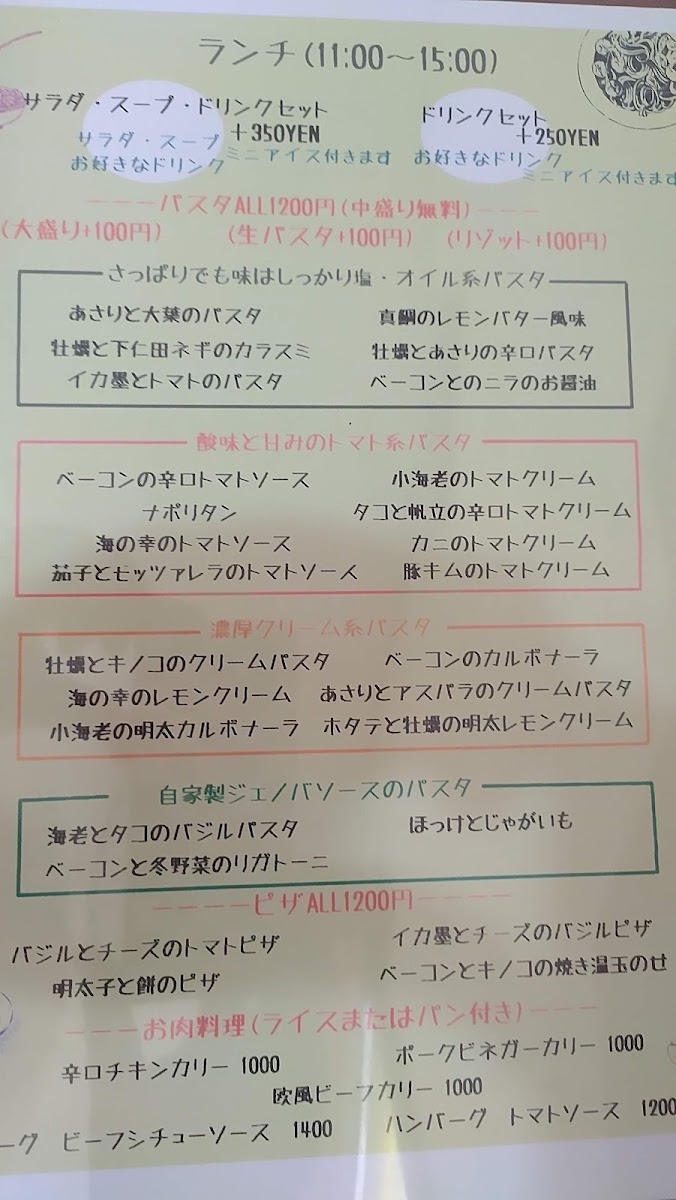 ランチ(11:00〜15:00)
サラダ・スープ・ドリンクセット
+350YEN
サラダ・スープ
お好きなドリンク
ミニアイス付きます
ドリンクセット
+250YEN
お好きなドリンク
ミニアイス付きます
---パスタALL1200円(中盛り無料)---
(大盛り+100円) (生パスタ+100円) (リゾット+100円)
さっぱりでも味はしっかり塩・オイル系パスタ
あさりと大葉のパスタ 真鯛のレモンバター風味
牡蠣と下仁田ネギのカラスミ 牡蠣とあさりの辛口パスタ
イカ墨とトマトのパスタ ベーコンとのニラのお醤油
酸味と甘みのトマト系パスタ
ベーコンの辛口トマトソース 小海老のトマトクリーム
ナポリタン タコと帆立の辛口トマトクリーム
海の幸のトマトソース カニのトマトクリーム
茄子とモッツァレラのトマトソース 豚キムのトマトクリーム
濃厚クリーム系パスタ
牡蠣とキノコのクリームパスタ ベーコンのカルボナーラ
海の幸のレモンクリーム あさりとアスパラのクリームパスタ
小海老の明太カルボナーラ ホタテと牡蠣の明太レモンクリーム
自家製ジェノバソースのパスタ
海老とタコのバジルパスタ ほっけとじゃがいも
ベーコンと冬野菜のリガトーニ
----ピザALL1200円----
バジルとチーズのトマトピザ イカ墨とチーズのバジルピザ
明太子と餅のピザ ベーコンとキノコの焼き温玉のせ
---お肉料理(ライスまたはパン付き)---
辛口チキンカリー 1000 ポークビネガーカリー 1000
欧風ビーフカリー 1000
ーグ ビーフシチューソース 1400 ハンバーグ トマトソース 1200